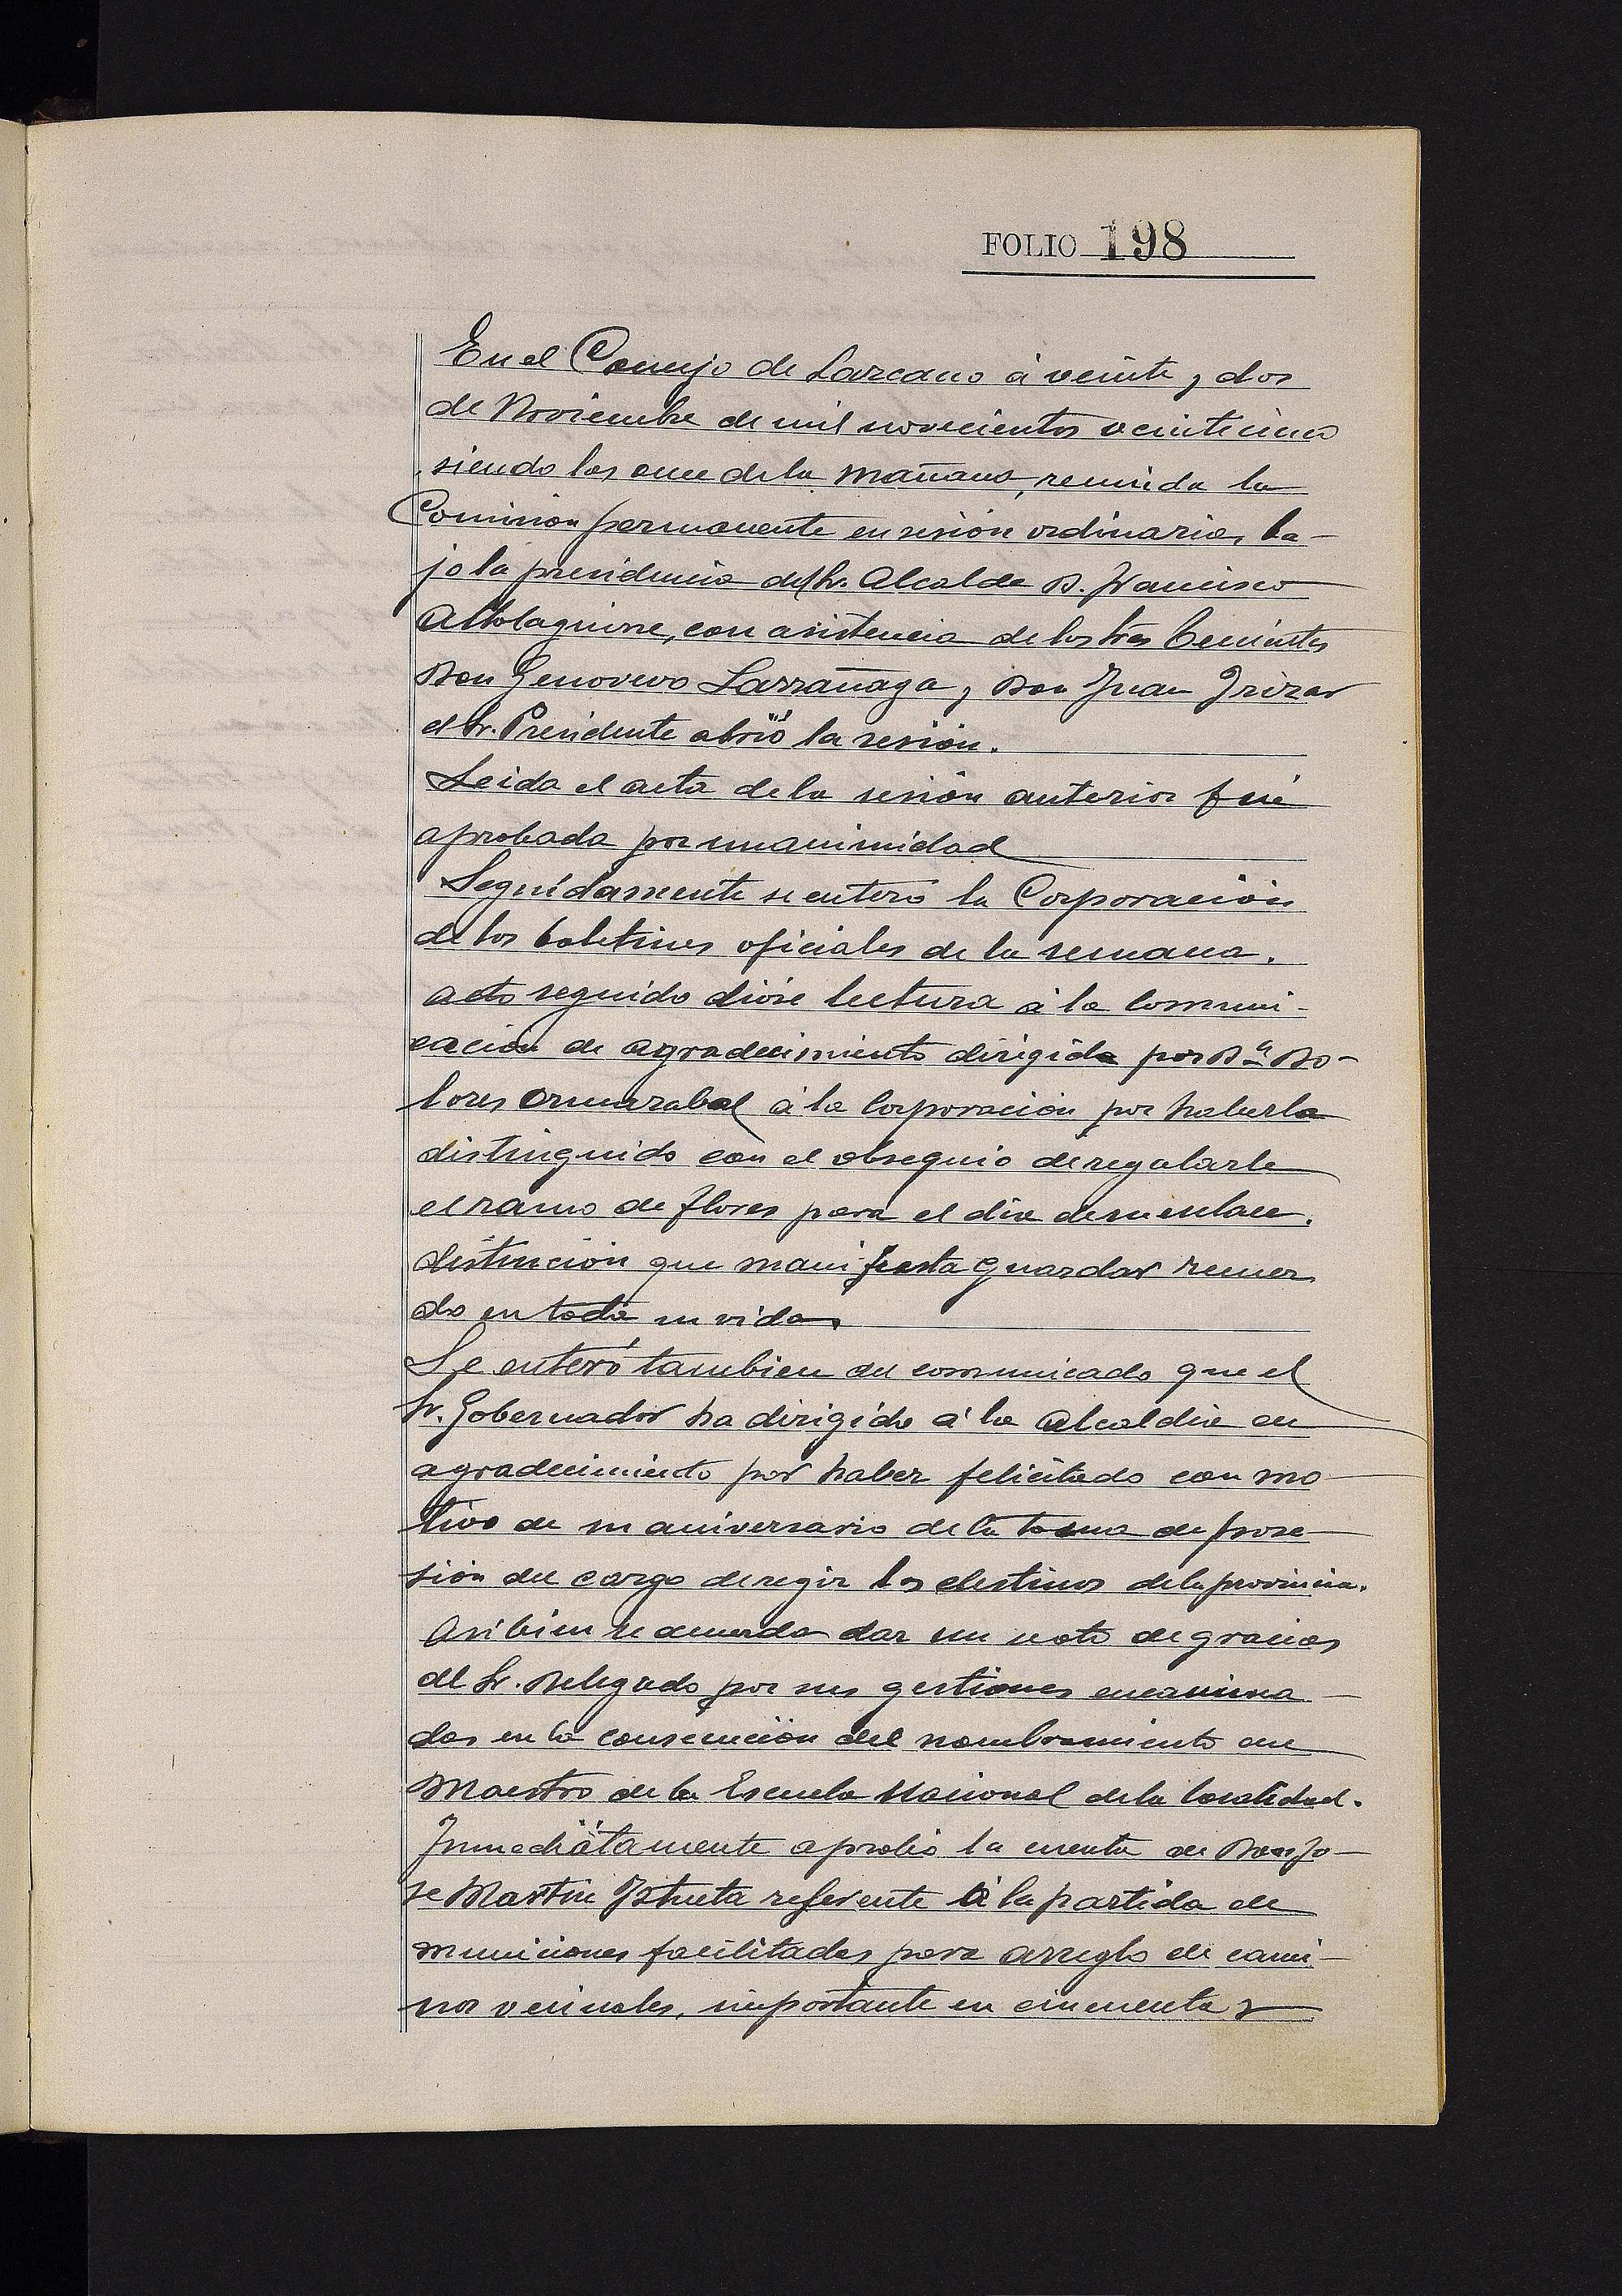 FOLIO 198
En el Concejo de Lazcano á veinte y dos
de Noviembre de mil novecientos veinticinco
siendo las once de la mañana, reunida la
Comision permanente en sesión ordinaria, ba-
jo la presidencia del Sr. Alcalde D. Francisco
Altolaguirre, con asistencia de los tres Tenientes
Don Genovevo Larrañaga y Don Juan Irizar
el Sr. Presidente abrió la sesión.
Leida el acta de la sesión anterior fué
aprobada por unanimidad
Seguidamente se enteró la Corporación
de los boletines oficiales de la semana.
Acto seguido dióse lectura á la comuni-
cación de agradecimiento dirigida por Dª Do-
lores á la Corporación por haberla
distinguido con el obsequio de regalarle
el ramo de flores para el dia de su enlace.
distinción que manifiesta guardar recuer
do en toda su vida.
Se enteró tambien del comunicado que el
Sr. Gobernador ha dirigido á la Alcaldia en
agradecimiento por haber felicitado con mo-
tivo de su aniversario de la toma de pose
sión del cargo de regir los destinos de la provincia.
Asi bien se acuerda dar un voto de gracias
al Sr. Delegado por sus gestiones encamina-
das en la consecución del nombramiento de
Maestro de la Escuela Nacional de la localidad.
Inmediatamente aprobó la cuenta de Don Jo-
se Martin Iztueta referente á la partida de
municiones facilitadas para arreglo de cami-
nos vecinales, importante en cincuenta y